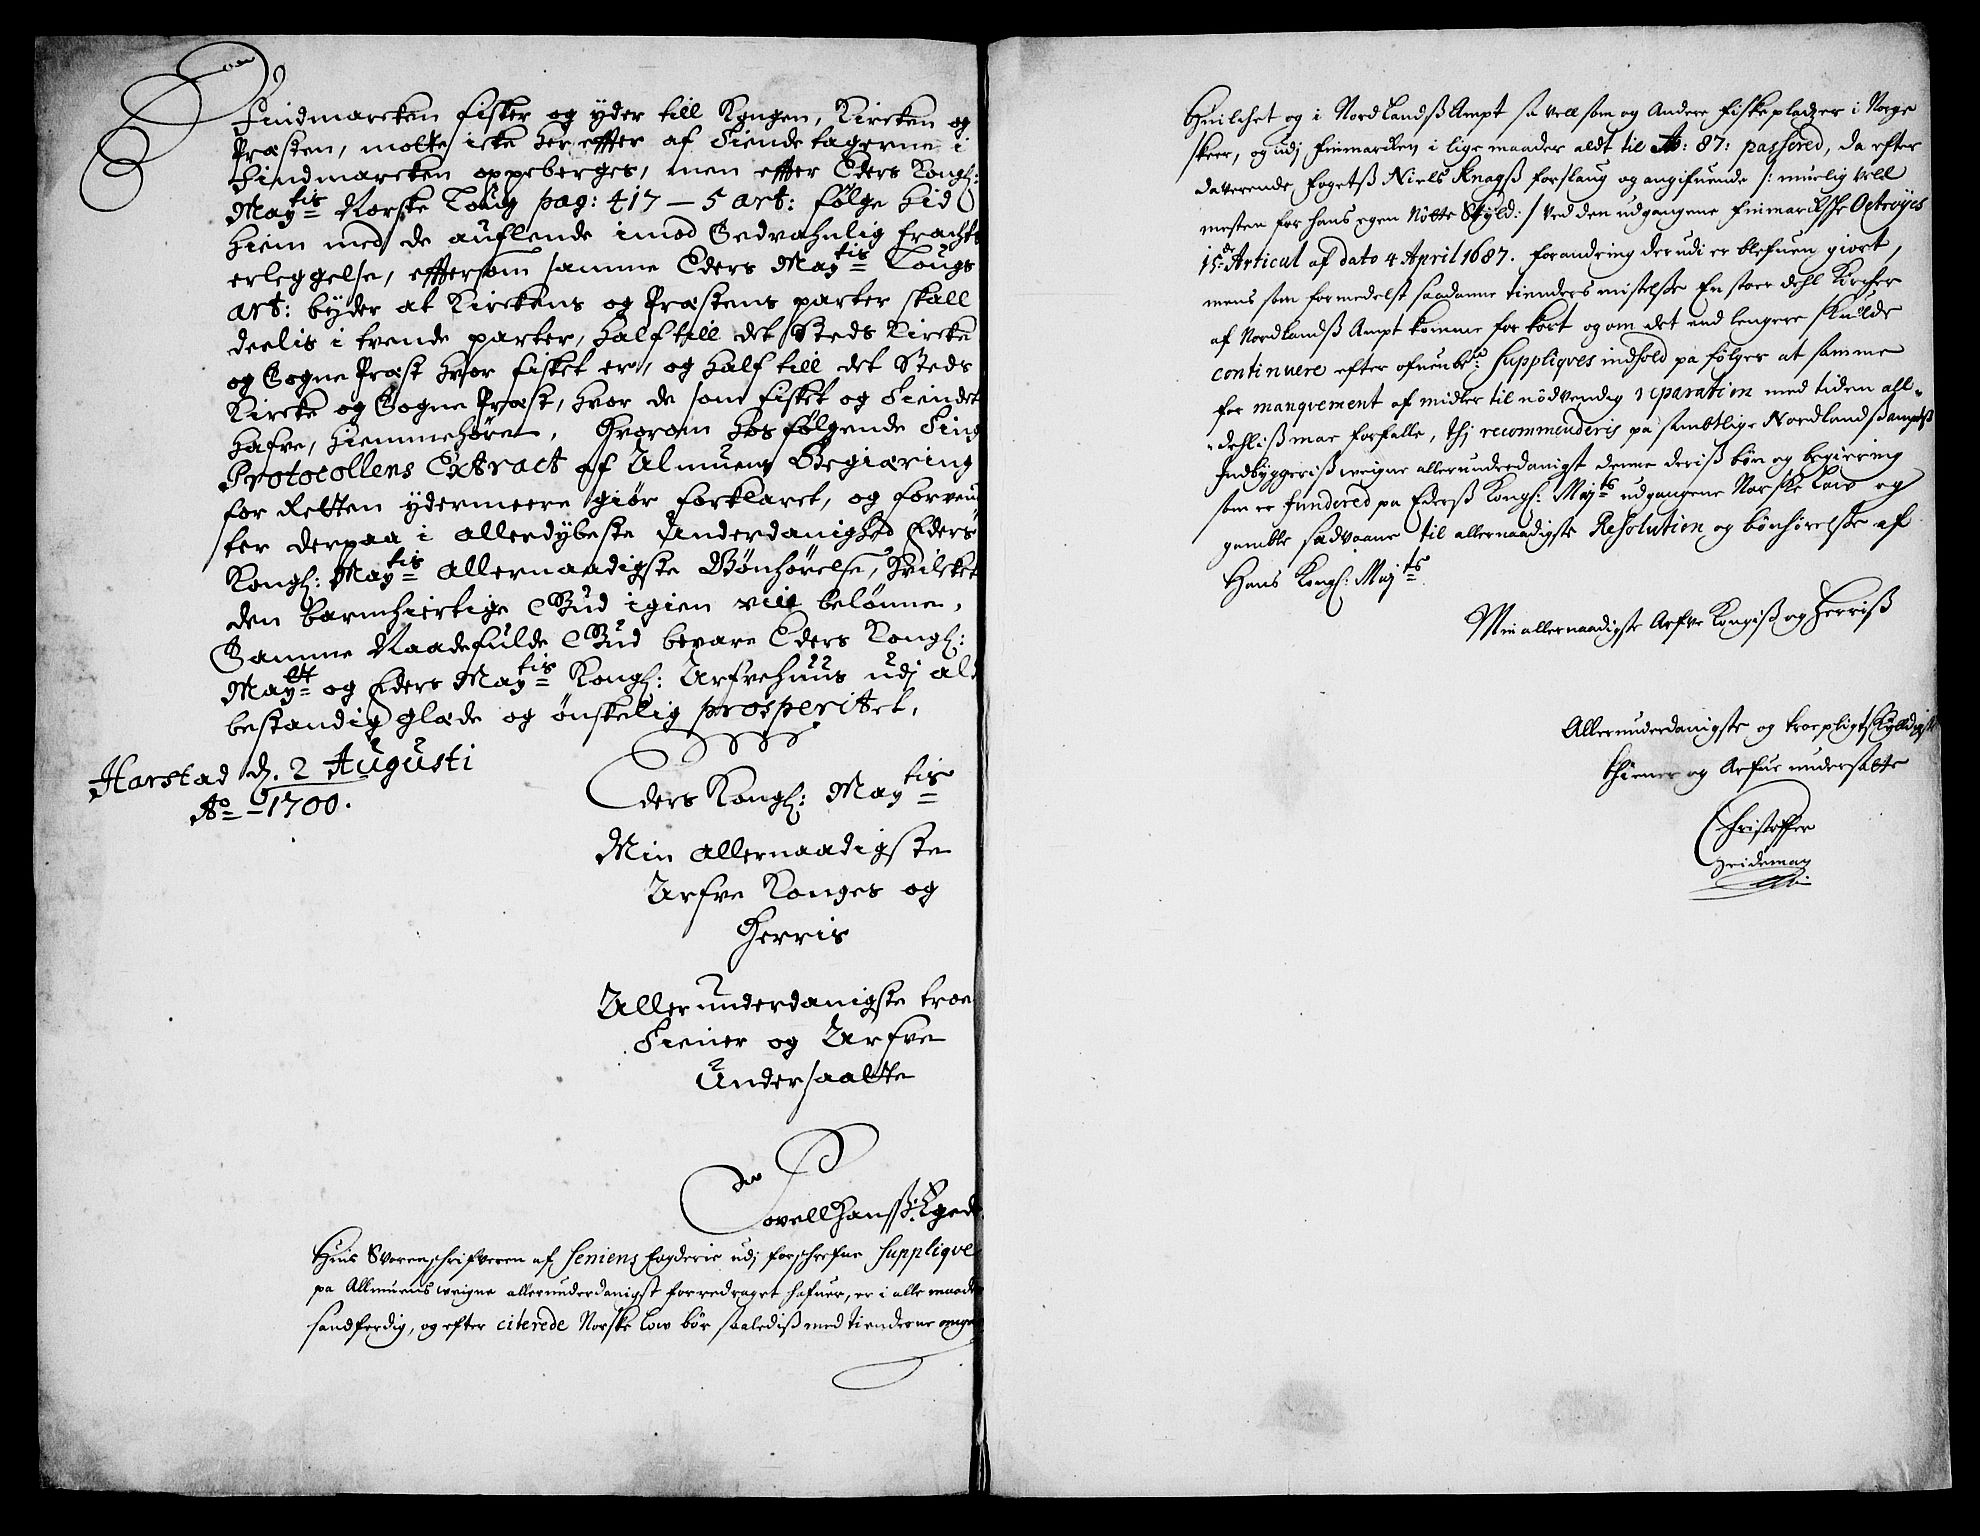 Findmarcken fisker og yder till Kongen, Kircken og
Præsten, motte icke her effter af Tiendetagerne i
Findmarcken oppeberges, men effter Eders Kongl:
May:tis Norske Loug pag: 417 – 5 art: følge hid
hiem med de auflende imod Sedvahnlig fracht
erleggelse, effterſom samme Eders May:tis Lougs
art: byder at Kirckens og Præstens parter skall
deelis i tvende parter, half till det Steds Kircke
og Sogne Præst hvor fisket er, og half till det Steds
Kircke og Sogne Præst, hvor de som fisket og Tiendet
hafve, hiemmehøre, Hvorom hosfølgende Ting
Protocollens Extract af Almuens Begiæring
for Retten ydermeere giør forklaret, og forven
ter derpaa i allerdybeste Underdanighed Eders
Kongl: May:tis allernaadigste Bønhørelse, hvilcket
den barmhiertige Gud igien vill belønne,
Samme Naadefulde Gud bevare Eders Kongl:
May:tt og Eders May:tis Kongl: Arfvehuus udj ald
bestandig glæde og ønskelig prosperitet.
Harstad d. 2 Augusti
Ao 1700.
Eders Kongl: May:tis
Min allernaadigste
Arfve Konges og
Herris
Allerunderdanigste troe
Tiener og Arfve
Undersaatte
Povell Hanss:
Hvis Sorenschrifveren af Seniens fogderie udj forschrefne Suppliqve
pa Allmuens weigne allerunderdanigst forredraget hafuer, er i alle maader
sandferdig, og efter citerede Norske Low bør saalediß med tienderne omgaa
Huilchet og i Nordlandß Ampt sa vell som og Andere fiskepladzer i Norge
skeer, og udj Finmarcken i lige maader aldt til Ao: 87: passered, da efter
daverende fogetß Niels Knagß forslaug og angifuende /: muelig vell
mesten for hans egen Nötte Skyld: / ved den udgangene Finmarckske Octroyes
15:de Articul af dato 4 April 1687. forandring der udi er blefuen giort,
mens som formedelst saadanne tienders mistelse En stoer dehl Kircher
af Nordlandß Ampt komme for kort og om det end lengere skulde
continuere efter ofuenbte: Suppliqves indhold pa følger at samme
for manqvement af midler til nödvendig reparation med tiden all-
-dehliß mae forfalle, thj recommenderis pa samptlige Nordlandß ampts
Indbyggeriß weigne allerunderdanigst denne deriß bön og begiering
som er fundered pa Ederß Kongl: May:ts udgangene Norske Low og
gamble sædvaane til allernaadigste Resolution og bönhörelse af
Hans Kongl: May:ts
Min allernaadigste Arfve Kongiß og Herriß
Allerunderdanigste og troepligtskyldigste
thiener og Arfue undersatte
Christoffer
Heideman